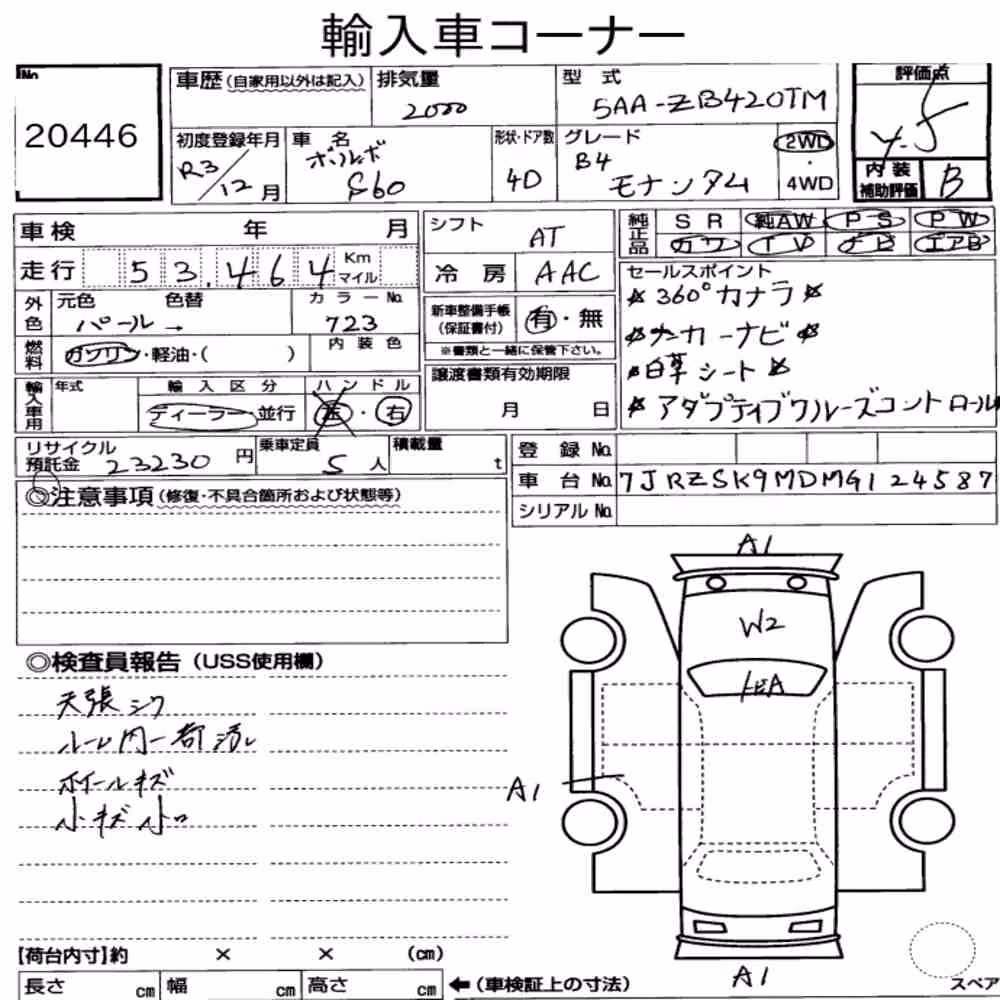 輸入車コーナー
No. 20446
車歴(自家用以外は記入) 排気量 2000 型式 5AA-ZB420TM 評価点
初度登録年月 R3/12月 車名 ボルボ S60 形状・ドア数 4D グレード B4 モメンタム 2WD・4WD
内装補助評価 B
車検 年 月 シフト AT 純正品 SR 純AW PS PW
カワ TV ナビ エアB
走行 53,464 Km マイル 冷房 AAC
外色 元色 パール 色替 → カラーNo. 723
燃料 ガソリン・軽油・( ) 内装色
新車整備手帳(保証書付) 有・無
※書類と一緒に保管下さい。
セールスポイント
360°カメラ
メーカーナビ
白革シート
アダプティブクルーズコントロール
輸入車用 年式 輸入区分 ディーラー・並行 ハンドル 左・右
譲渡書類有効期限 月 日
リサイクル預託金 23230円 乗車定員 5人 積載量 t
登録No.
車台No. 7JRZSK9MDMG124587
シリアルNo.
◎注意事項(修復・不具合箇所および状態等)
◎検査員報告(USS使用欄)
天張シワ
ホイールキズ
小キズ小凹
A1
W2
A1
A1
【荷台内寸】約 × × (cm)
長さ cm 幅 cm 高さ cm ←(車検証上の寸法)
スペア